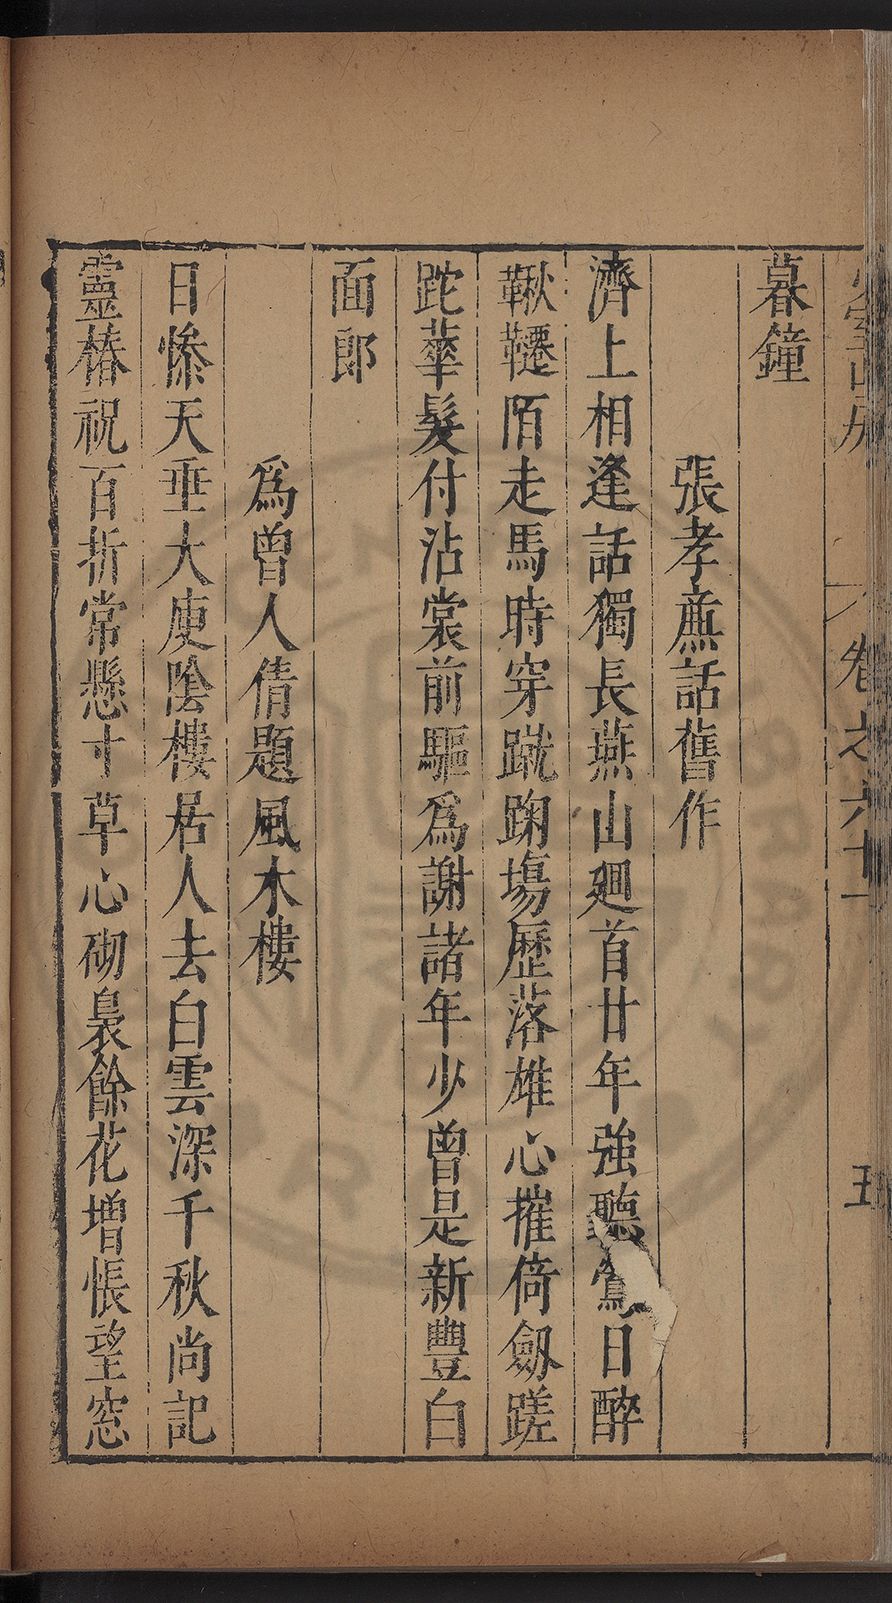 卷之六十一
五
暮鐘
張孝廡話舊作
濟上相逢話獨長燕山廻首廿年強聽鶯日醉
鞦韆陌走馬時穿蹴踘塲歷落雄心摧倚劒蹉
跎華髮付沾裳前驅爲謝諸年少曾是新豐白
面郎
爲曾人倩題風木樓
日慘天垂大庾陰樓居人去白雲深千秋尚記
靈椿祝百折常懸寸草心砌裊餘花增悵望窓